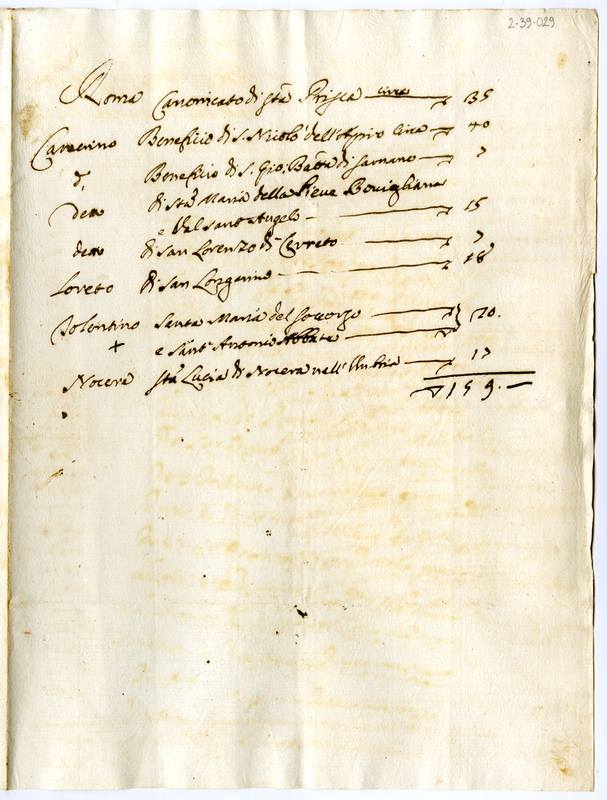 2-39-029
Roma Canonicato di Sta Prisca circa 35
Camerino Beneficio di S. Nicolò dell'Apiro circa 40
d. Beneficio di S. Gio: Batta di Sarnano 7
detto di Sta Maria della Pieve Bovigliana
e Val Sant'Angelo 15
detto di San Lorenzo di Cerreto 7
Loreto di San Longarino 18
Tolentino Santa Maria del Soccorso
+ e Sant'Antonio Abbate 20.
Nocera Sta Lucia di Nocera nell'Umbria 17
159.